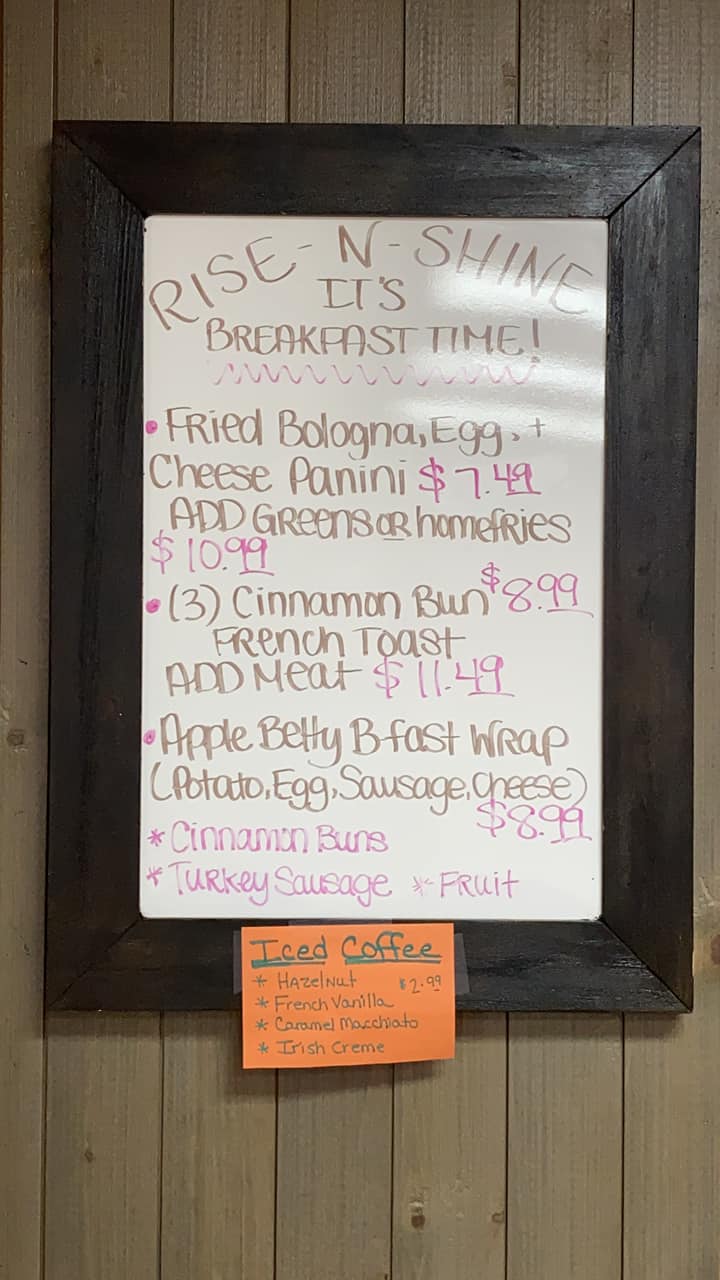 RISE-N-SHINE
IT'S
BREAKFAST TIME!
• Fried Bologna, Egg, +
Cheese Panini $7.49
ADD GREENS OR homefries
$10.99
• (3) Cinnamon Bun $8.99
FRENCH TOAST
ADD MEAT $11.49
• Apple Betty B-fast Wrap
(Potato, Egg, Sausage, Cheese)
$8.99
* Cinnamon Buns
* Turkey Sausage * FRUIT
Iced Coffee
* HAzelNut $2.99
* French Vanilla
* Caramel Macchiato
* Irish Creme